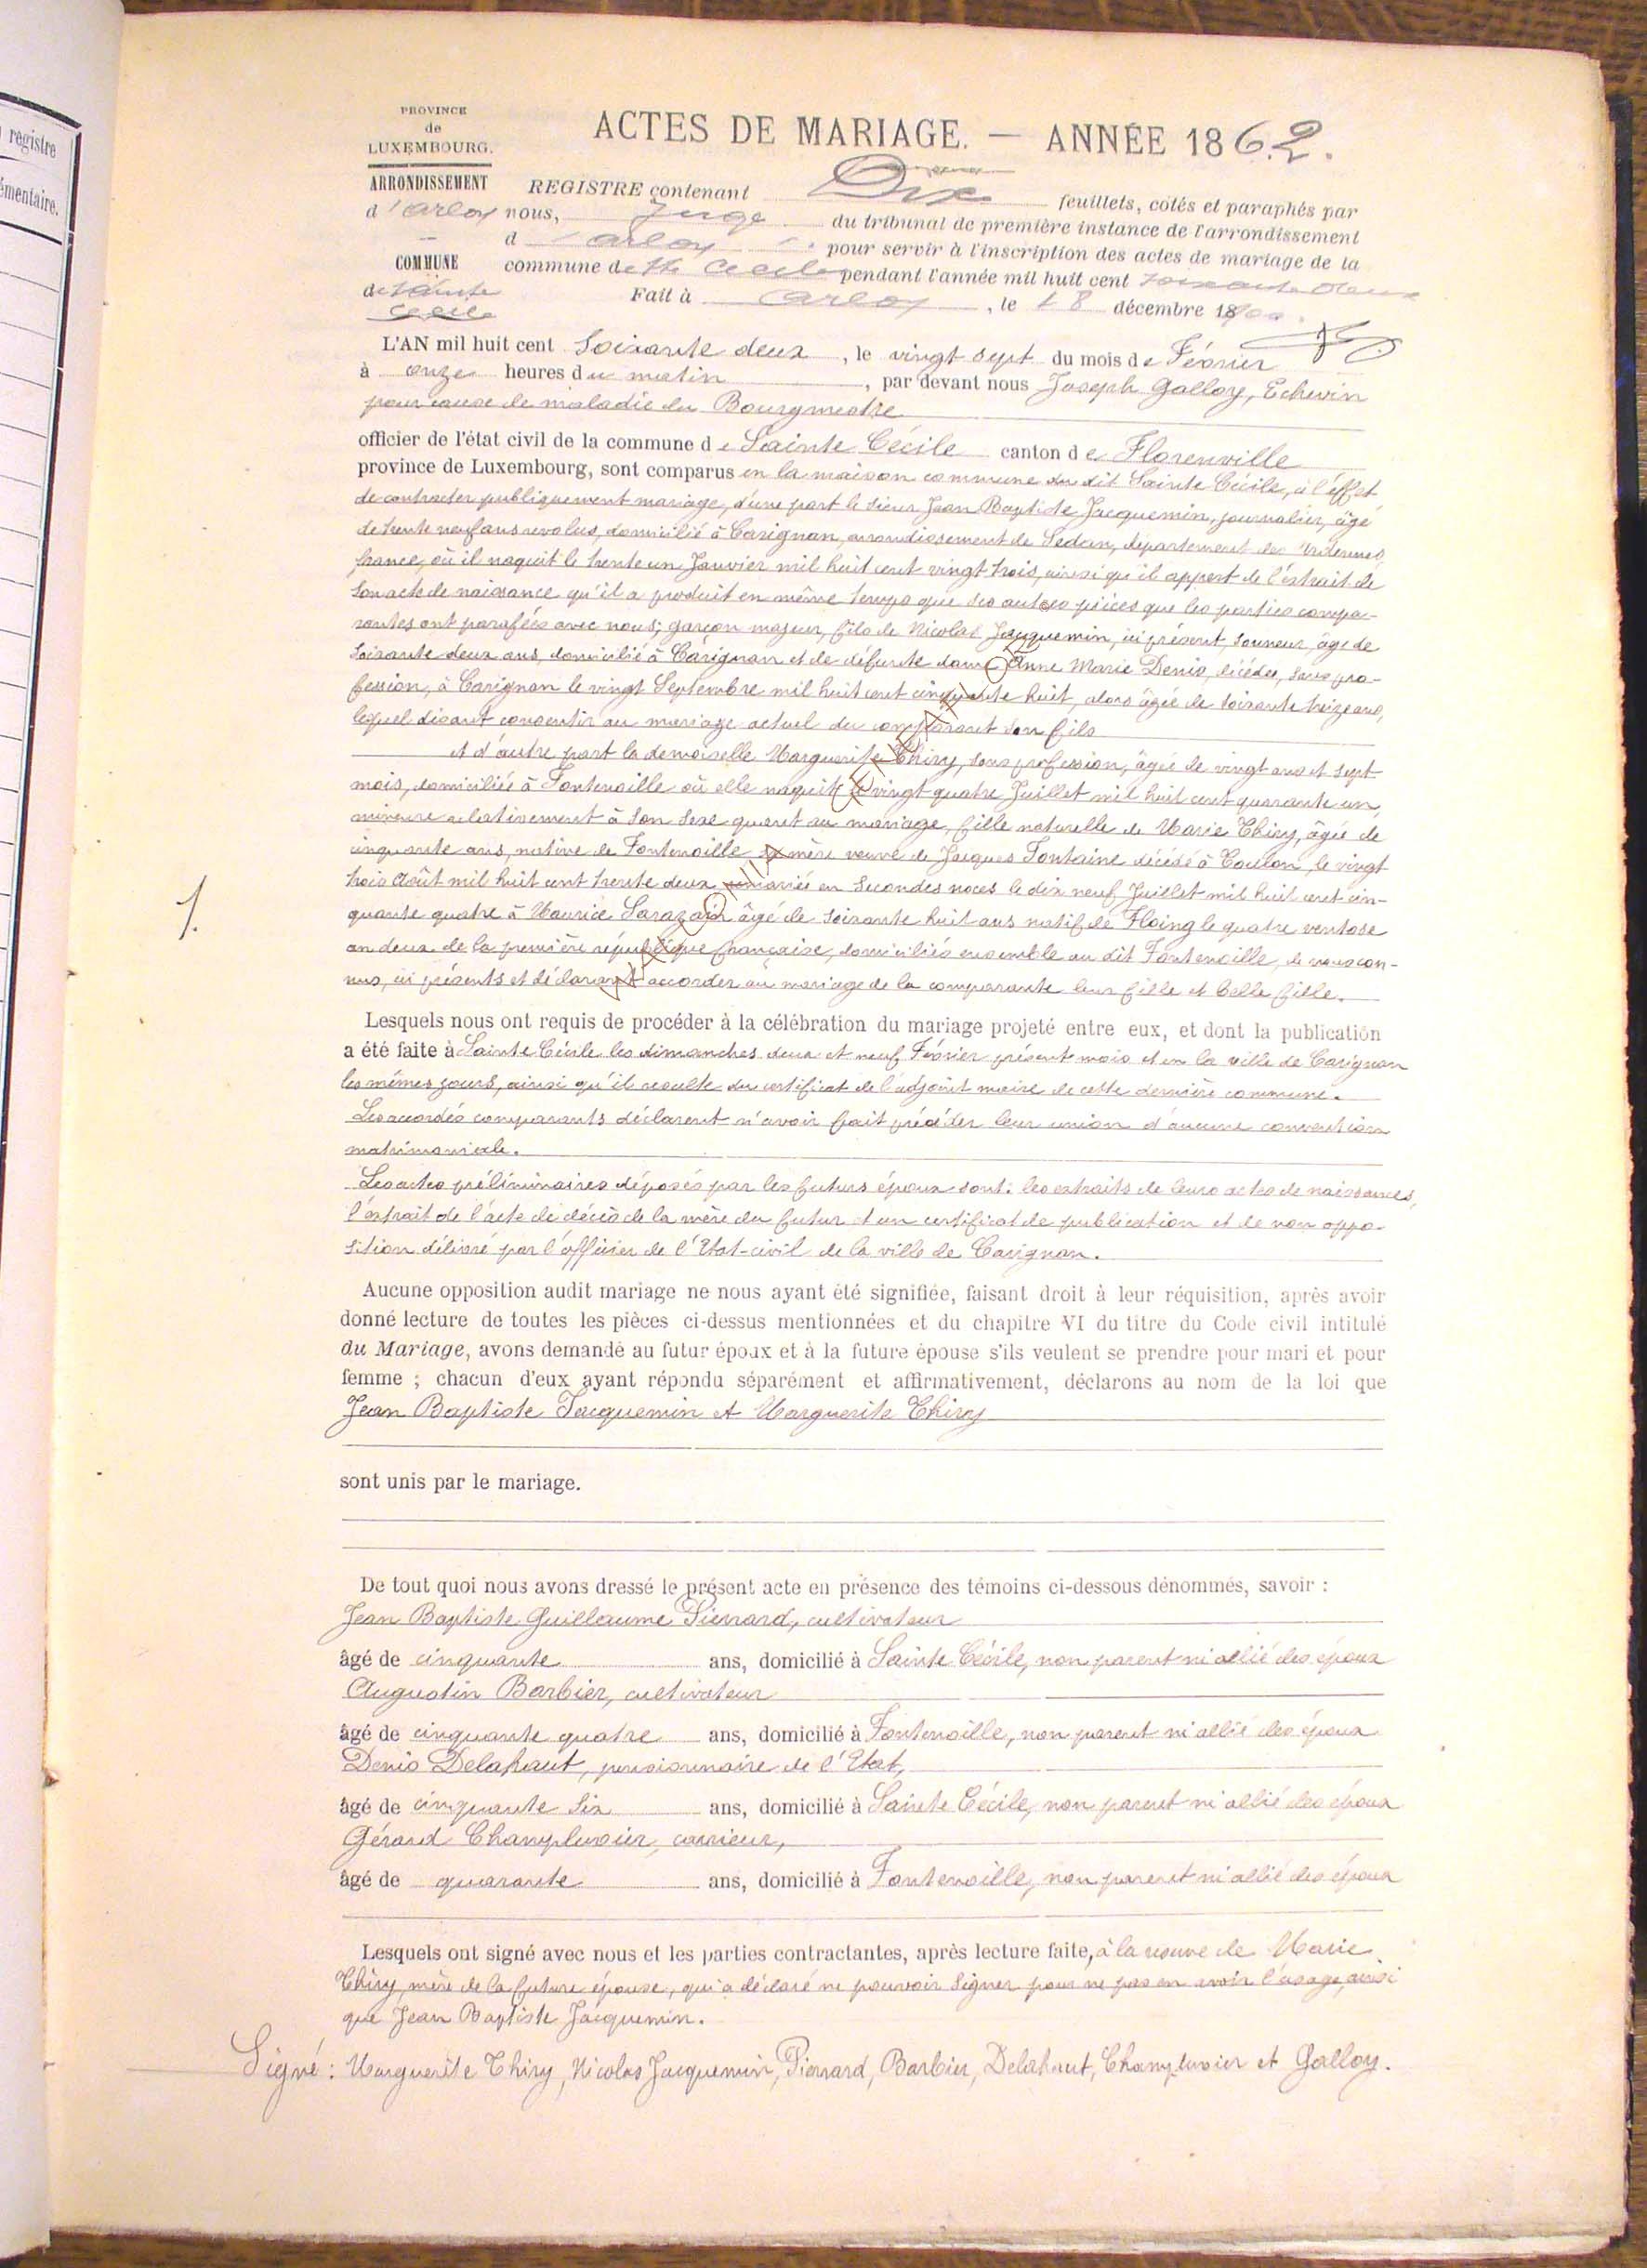 registre
émentaire.
PROVINCE
de
LUXEMBOURG.
ARRONDISSEMENT
d'Arlon
COMMUNE
de Sainte
Cécile
ACTES DE MARIAGE. — ANNÉE 1862.
REGISTRE contenant Dix feuillets, cotés et paraphés par
nous, Juge du tribunal de première instance de l'arrondissement
d'Arlon pour servir à l'inscription des actes de mariage de la
commune de Ste Cecile pendant l'année mil huit cent soixante deux
Fait à Arlon, le 18 décembre 18
L'AN mil huit cent Soixante deux, le vingt sept du mois de Février
à onze heures du matin, par devant nous Joseph Galloy, Echevin
pour cause de maladie du Bourgmestre
officier de l'état civil de la commune de Sainte Cécile canton de Florenville
province de Luxembourg, sont comparus en la maison commune du dit Sainte Cécile, à l'effet
de contracter publiquement mariage, d'une part le sieur Jean Baptiste Jacquemin, journalier, âgé
de trente neuf ans revolus, domicilié à Carignan, arrondissement de Sedan, département des Ardennes
france, où il naquit le trente un Janvier mil huit cent vingt trois, ainsi qu'il appert de l'extrait de
son acte de naissance qu'il a produit en même temps que les autres pièces que les parties compa-
rantes ont parafées avec nous; garçon majeur, fils de Nicolas Jacquemin, ici présent, sonneur, âgé de
soixante deux ans, domicilié à Carignan et de défunte dame Anne Marie Denis, décédée, sans pro-
fession, à Carignan le vingt Septembre mil huit cent cinquante huit, alors âgée de soixante treize ans,
lequel disant consentir au mariage actuel du comparant son fils
et d'autre part la demoiselle Marguerite Thiry, sans profession, âgée de vingt ans et sept
mois, domiciliée à Fontenoille où elle naquit le vingt quatre Juillet mil huit cent quarante un,
mineure relativement à son sexe quant au mariage, fille naturelle de Marie Thiry, âgée de
cinquante ans, native de Fontenoille sa mère veuve de Jacques Fontaine décédé à Toulon, le vingt
trois Août mil huit cent trente deux remariée en secondes noces le dix neuf Juillet mil huit cent cin-
quante quatre à Maurice Sarazain âgé de soixante huit ans natif de Floing le quatre ventose
an deux de la première république française, domiciliés ensemble au dit Fontenoille, de nous con-
nus, ici présents et déclarant accorder au mariage de la comparante leur fille et belle fille.
1.
Lesquels nous ont requis de procéder à la célébration du mariage projeté entre eux, et dont la publication
a été faite à Sainte Cécile les dimanches deux et neuf Février présent mois et en la ville de Carignan
les mêmes jours, ainsi qu'il resulte du certificat de l'adjoint maire de cette dernière commune.
Les accordés comparants déclarent n'avoir fait précéder leur union d'aucune convention
matrimoniale.
Les actes préliminaires déposés par les futurs époux sont: les extraits de leurs actes de naissances,
l'extrait de l'acte de décès de la mère du futur et un certificat de publication et de non oppo-
sition délivré par l'officier de l'Etat-civil de la ville de Carignan.
Aucune opposition audit mariage ne nous ayant été signifiée, faisant droit à leur réquisition, après avoir
donné lecture de toutes les pièces ci-dessus mentionnées et du chapitre VI du titre du Code civil intitulé
du Mariage, avons demandé au futur époux et à la future épouse s'ils veulent se prendre pour mari et pour
femme ; chacun d'eux ayant répondu séparément et affirmativement, déclarons au nom de la loi que
Jean Baptiste Jacquemin et Marguerite Thiry
sont unis par le mariage.
De tout quoi nous avons dressé le présent acte en présence des témoins ci-dessous dénommés, savoir :
Jean Baptiste Guillaume Pierrard, cultivateur
âgé de cinquante ans, domicilié à Sainte Cécile, non parent ni allié des époux
Augustin Barbier, cultivateur
âgé de cinquante quatre ans, domicilié à Fontenoille, non parent ni allié des époux
Denis Delahaut, pensionnaire de l'Etat,
âgé de cinquante six ans, domicilié à Sainte Cécile, non parent ni allié des époux
Gérard Champluvier, carrieur,
âgé de quarante ans, domicilié à Fontenoille, non parent ni allié des époux
Lesquels ont signé avec nous et les parties contractantes, après lecture faite, à la reserve de Marie
Thiry, mère de la future épouse, qui a déclaré ne pouvoir signer pour ne pas en avoir l'usage, ainsi
que Jean Baptiste Jacquemin.
Signé : Marguerite Thiry, Nicolas Jacquemin, Pierrard, Barbier, Delahaut, Champluvier et Galloy.